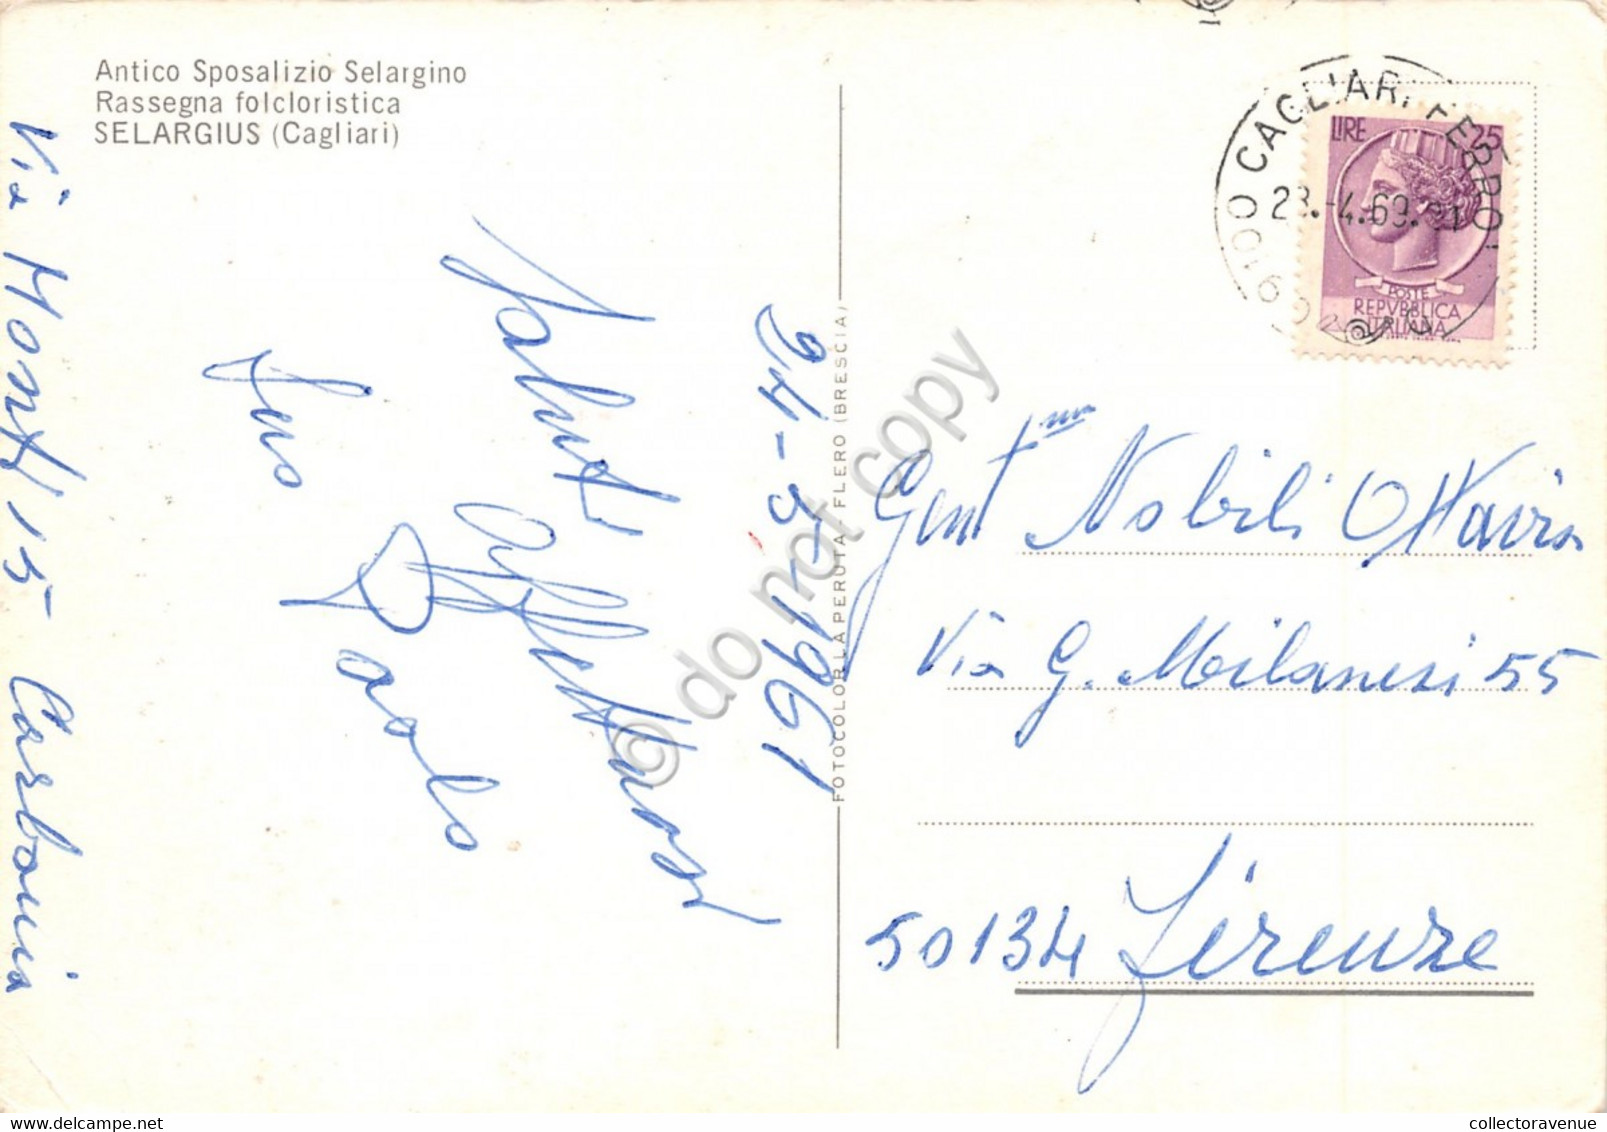 Antico Sposalizio Selargino
Rassegna folcloristica
SELARGIUS (Cagliari)
24-5-1961
Saluti
Affettuosi
Paolo
Via Monti 15 Carbonia
FOTOCOLOR LAPERUTA FLERO (BRESCIA)
09100 CAGLIARI FERRO
28.-4.69.21
LIRE 25
POSTE
REPVBBLICA
ITALIANA
Gent ma Nobili Ottavia
Via G. Milanesi 55
50134 Firenze
© do not copy
www.delcampe.net
collectoravenue